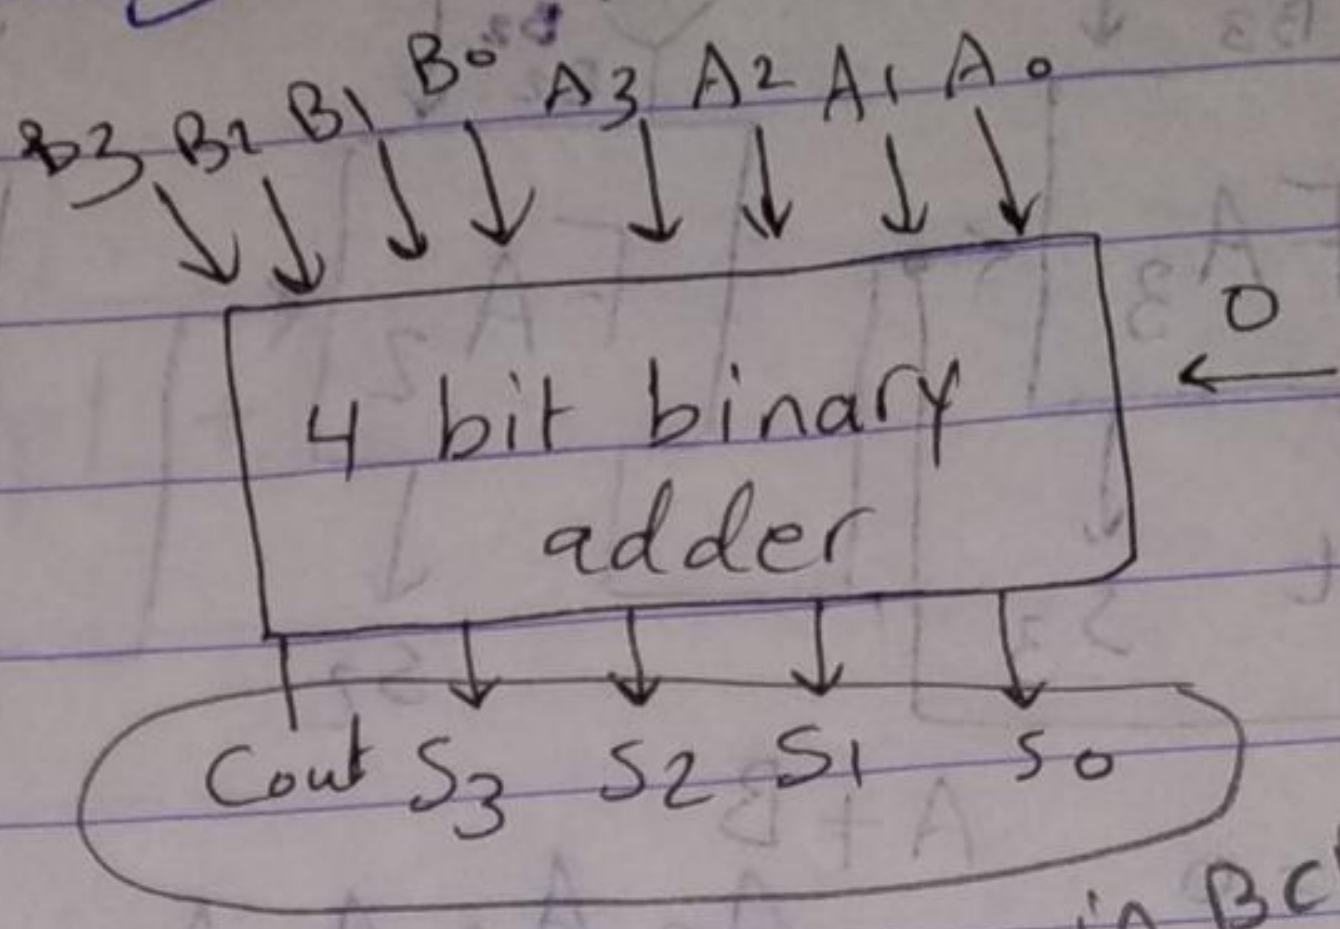 B3 B2 B1 B0 A3 A2 A1 A0
0
4 bit binary
adder
Cout S3 S2 S1 S0
in BC